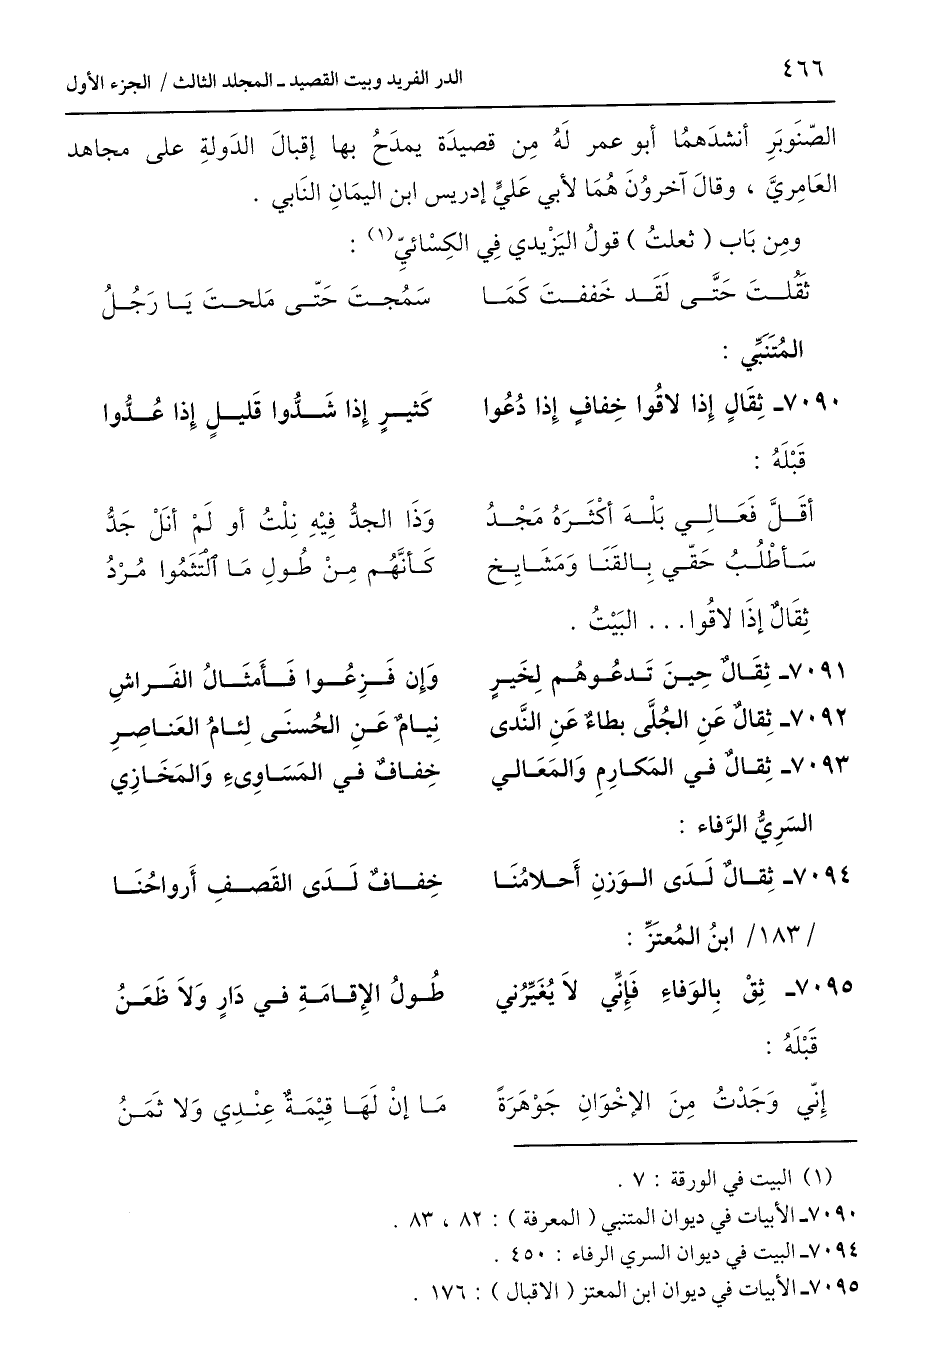 ٤٦٦
الدر الفريد وبيت القصيد ـ المجلد الثالث / الجزء الأول
الصّنوبَرِ أنشدَهمُا أبو عمر لَهُ مِن قصيدَة يمدَحُ بها إقبالَ الدَولةِ على مجاهد
العَامِريَّ ، وقالَ آخروُنَ هُمَا لأبي عَليٍّ إدريس ابن اليمَانِ النَابي .
ومِن بَاب ( ثعلتُ ) قولُ اليَزْيدي فِي الكِسْائيّ(١) :
ثَقُلتَ حَتَّى لَقَد خَففتَ كَمَا سَمُجتَ حَتّى مَلحتَ يَا رَجُلُ
المُتَنَبِّي :
٧٠٩٠ـ ثِقَالٍ إِذا لاقُوا خِفافٍ إذا دُعُوا كَثيرٍ إذا شَدُّوا قَليلٍ إذا عُدُّوا
قَبْلَهُ :
أقَلَّ فَعَالِي بَلْهَ أكْثَرَهُ مَجْدُ وَذَا الجدُّ فِيْهِ نِلْتُ أو لَمْ أنَلْ جَدُّ
سَأطْلُبُ حَقّي بِالقَنَا وَمَشَايخ كَأنَّهُم مِنْ طُولِ مَا الْتَثَمُوا مُرْدُ
ثِقَالٌ إذَا لاقُوا . . . البَيْتُ .
٧٠٩١ـ ثِقَالٌ حِينَ تَدعُوهُم لِخَيرٍ وَإن فَزِعُوا فَأمثَالُ الفَراشِ
٧٠٩٢ـ ثِقالٌ عَنِ الجُلَّى بطاءٌ عَنِ النَّدى نِيامٌ عَنِ الحُسنَى لِئامُ العَناصِرِ
٧٠٩٣ـ ثِقالٌ في المَكارِمِ وَالمَعَالي خِفافٌ في المَسَاوىءِ وَالمَخَازِي
السَرِيُّ الرَّفاء :
٧٠٩٤ـ ثِقالٌ لَدَى الوَزنِ أحلامُنَا خِفافٌ لَدَى القَصفِ أرواحُنَا
/١٨٣/ ابنُ المُعتَزِّ :
٧٠٩٥ـ ثِقْ بِالوَفاءِ فَإنِّي لاَ يُغَيّرُني طُولُ الإقامَةِ في دَارٍ وَلاَ ظَعَنُ
قَبْلَهُ :
إنّي وَجَدْتُ مِنَ الإخْوَانِ جَوْهَرَةً مَا إنْ لَهَا قِيْمَةٌ عِنْدِي وَلا ثَمَنُ
(١) البيت في الورقة : ٧ .
٧٠٩٠ـ الأبيات في ديوان المتنبي ( المعرفة ) : ٨٢ ، ٨٣ .
٧٠٩٤ـ البيت في ديوان السري الرفاء : ٤٥٠ .
٧٠٩٥ـ الأبيات في ديوان ابن المعتز ( الاقبال ) : ١٧٦ .